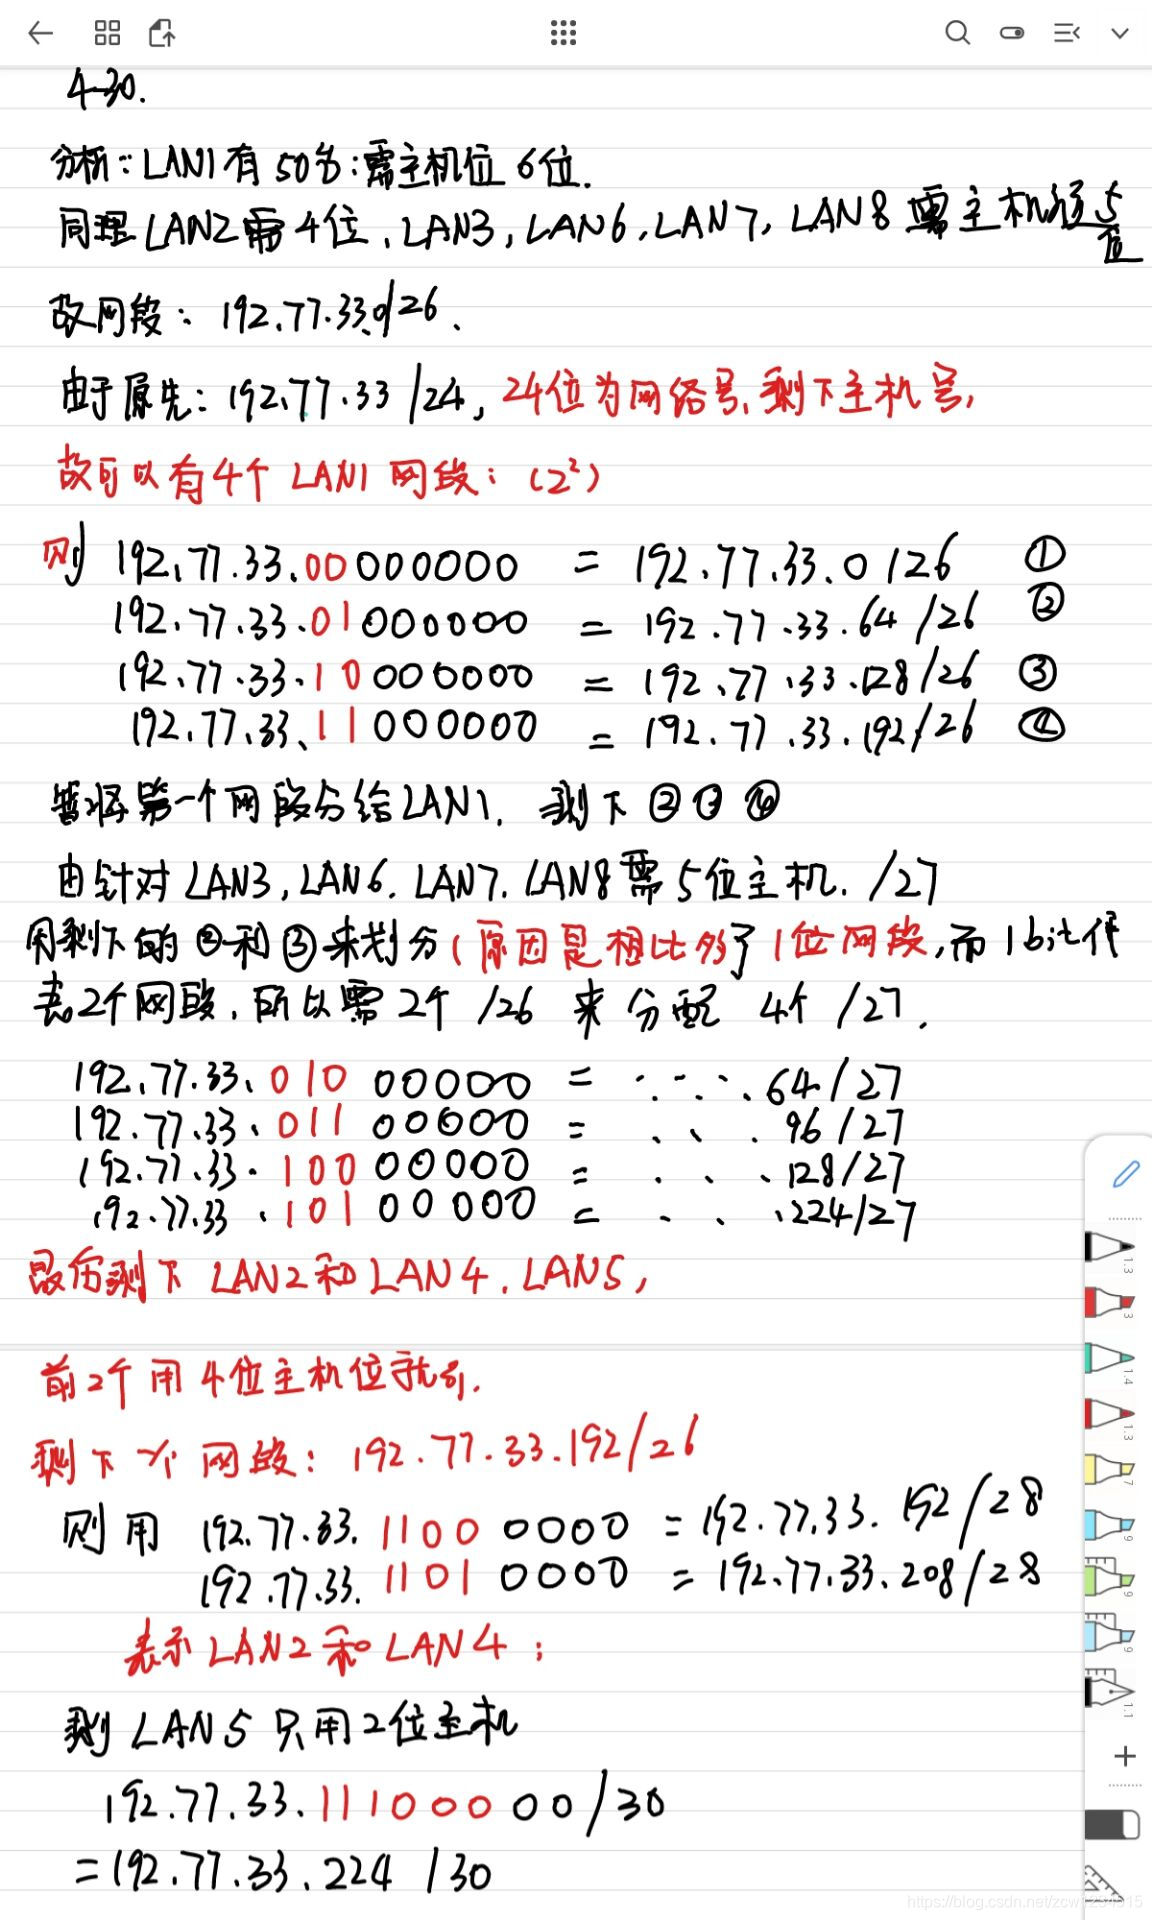 4-30.
分析:: LAN1有50台:需主机位6位.
同理LAN2需4位、LAN3, LAN6, LAN7, LAN8需主机须5位
故网段: 192.77.33.0/26.
由于原先: 192.77.33/24, 24位为网络号、剩下主机号,
故可以有4个LAN1网段: (2²)
则 192.77.33.00000000 = 192.77.33.0/26 ①
192.77.33.01000000 = 192.77.33.64/26 ②
192.77.33.10000000 = 192.77.33.128/26 ③
192.77.33.11000000 = 192.77.33.192/26 ④
暂将第一个网段分给LAN1. 剩下②③④
由针对LAN3, LAN6. LAN7. LAN8需5位主机. /27
用剩下的②和③来划分(原因是相比多了1位网段,而1bit代
表2个网段,所以需2个/26来分配4个/27.
192.77.33.010 00000 = ....64/27
192.77.33.011 00000 = ...96/27
192.77.33.100 00000 = ...128/27
192.77.33.101 00000 = ...224/27
最后剩下LAN2和LAN4.LAN5,
前2个用4位主机位就行.
剩下一个网段: 192.77.33.192/26
则用 192.77.33.1100 0000 = 192.77.33.192/28
192.77.33.1101 0000 = 192.77.33.208/28
表示LAN2和LAN4;
则LAN5只用2位主机
192.77.33.11100000/30
=192.77.33.224/30
1.3
3
1.4
1.3
7
9
9
9
1.1